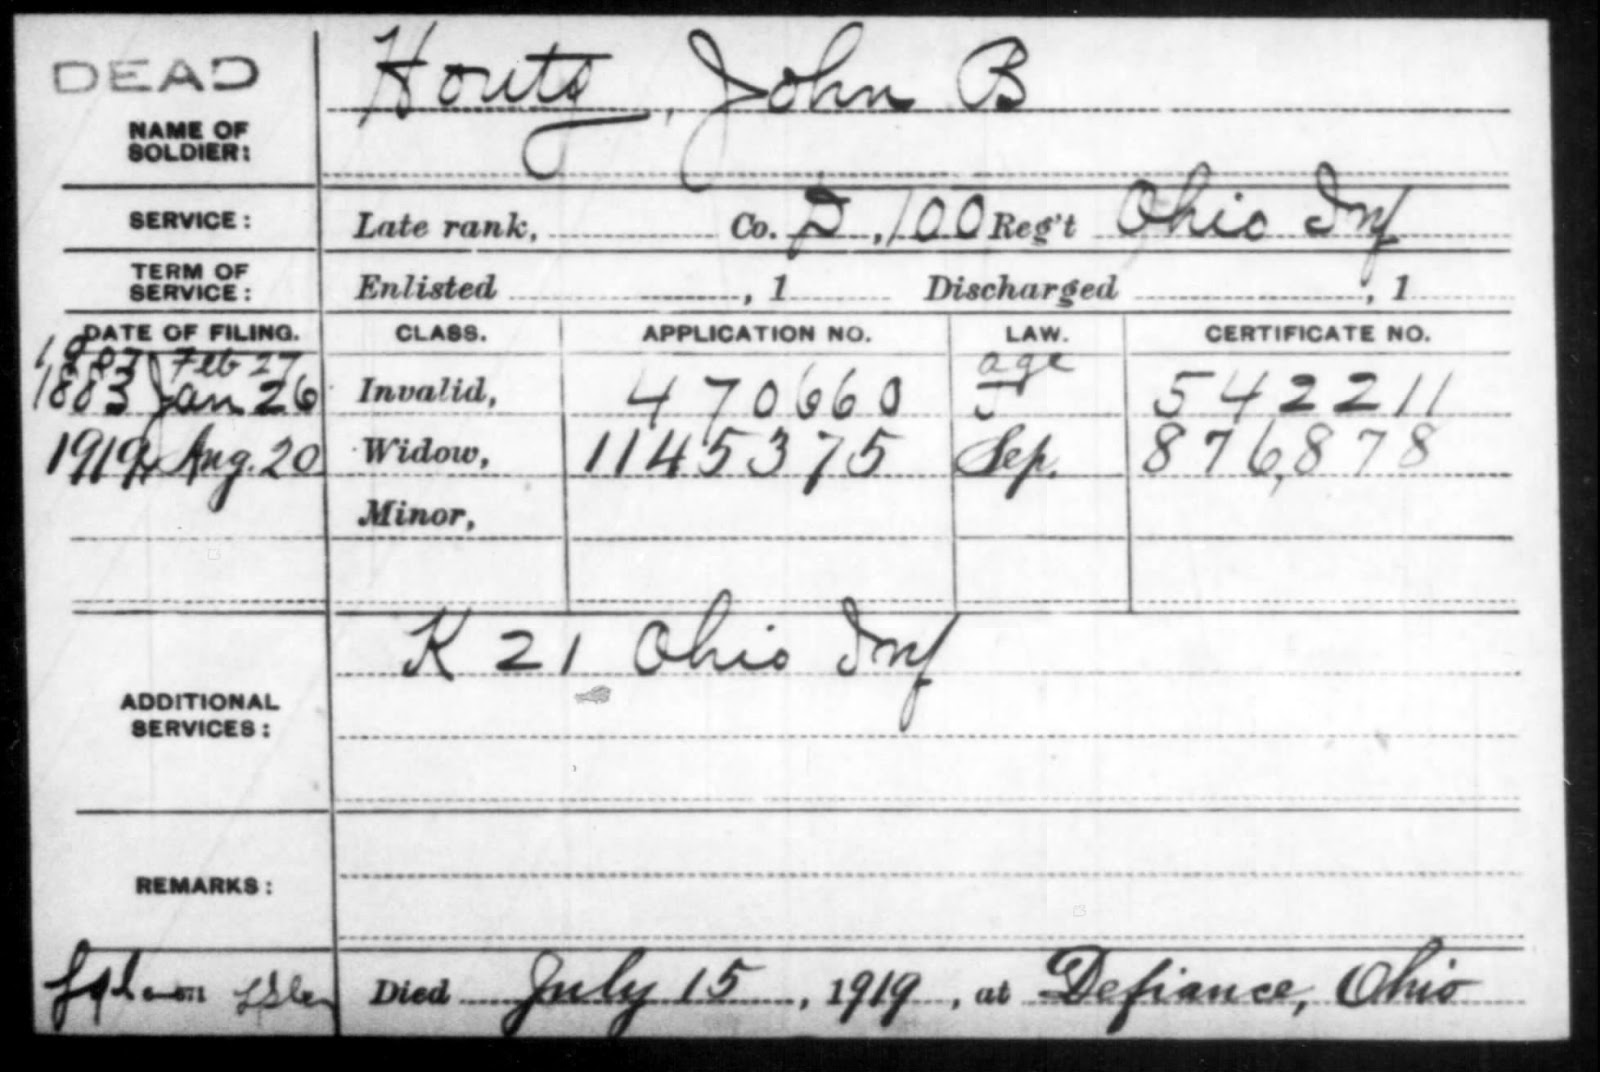 DEAD
Houtz, John B
NAME OF
SOLDIER:
SERVICE: Late rank, Co. D, 100 Reg't Ohio Inf
TERM OF
SERVICE: Enlisted , 1 Discharged , 1
DATE OF FILING. CLASS. APPLICATION NO. LAW. CERTIFICATE NO.
1907 Feb 27 age
1883 Jan 26 Invalid, 470660 J 542211
1919, Aug. 20 Widow, 1145375 Sep. 876,878
Minor,
K 21 Ohio Inf
ADDITIONAL
SERVICES:
REMARKS:
Died July 15, 1919, at Defiance, Ohio